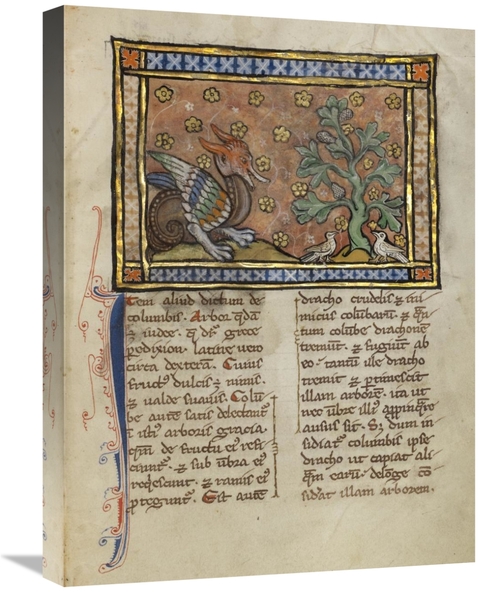 Tem aliud dictum de
columbis. Arbor q̄dā
ē iudee. q̄ d̄r grece
peridixion. latine vero
circa dexterā. Cuius
fructus dulcis ē nimis.
⁊ valde suavis. Colū
be autē satis delectant
ī isti' arboris gracia.
de fructu ei' refi
ciunt'. ⁊ sub ūbra ei'
reqescunt. ⁊ ramis ei'
ꝓtegunt'. Est autē
dracho crudelis ⁊ ini
micus colūbarū. ⁊
tum colūbe drachonē
tremunt. ⁊ fugiunt ab
eo. tantū ille dracho
tremit ⁊ ꝑtimescit
illam arborē. ita ut
nec ūbre illi' appinq̄re
ausus sit. Sꝫ dum in
sidiat' columbis ipse
dracho ut capiat ali
earū. de longe cō
sid'at illam arborem.